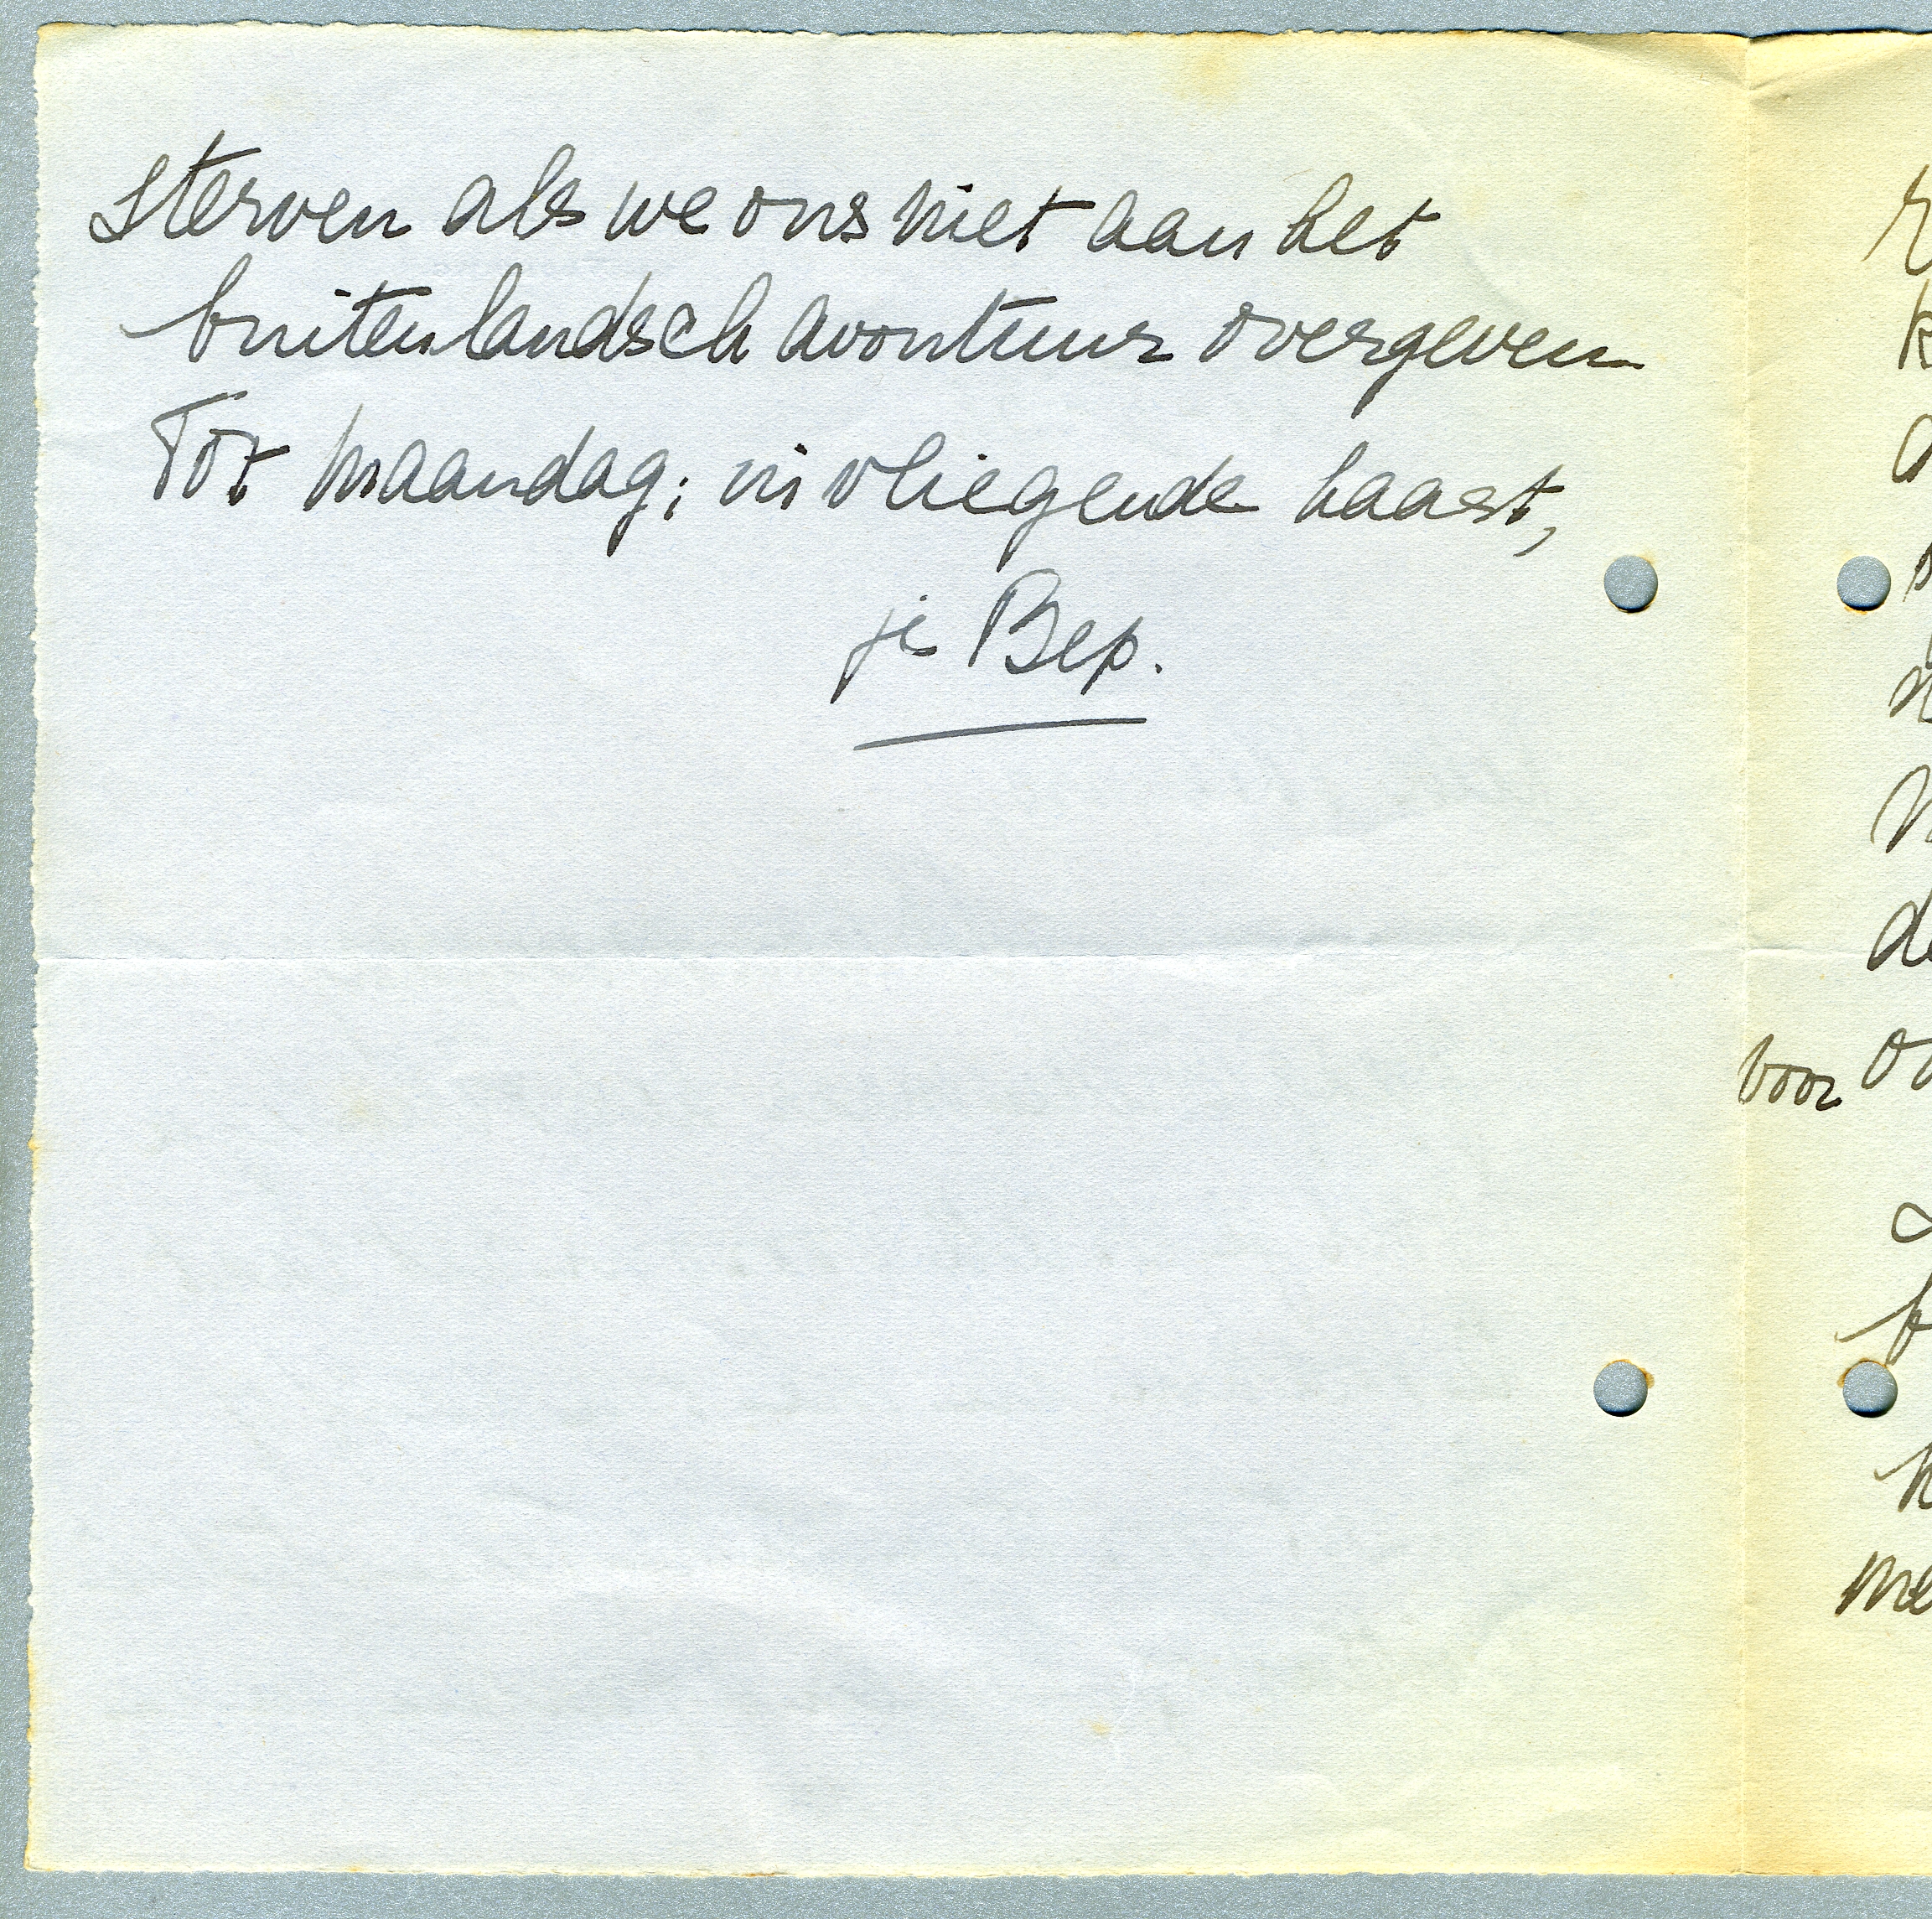 sterven als we ons niet aan het
buitenlandsch avontuur overgeven
Tot maandag; in vliegende haast,
je Bep.
voor